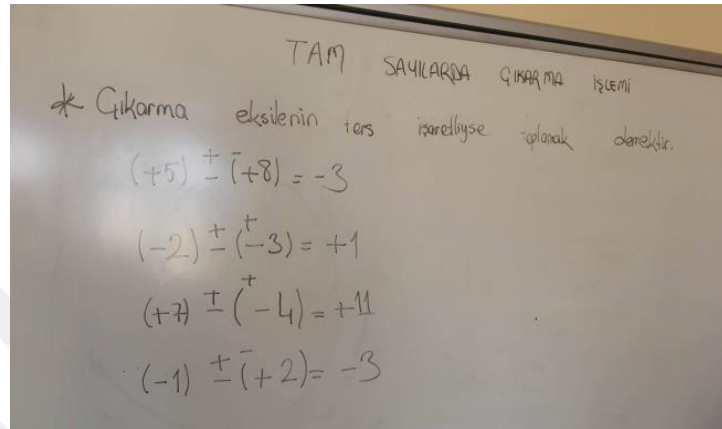 TAM SAYILARDA ÇIKARMA İŞLEMİ
* Çıkarma eksilenin ters işaretliyse toplamak demektir.
(+5) ± (∓8) = -3
(-2) ± (±3) = +1
(+7) ± (±4) = +11
(-1) ± (∓2) = -3